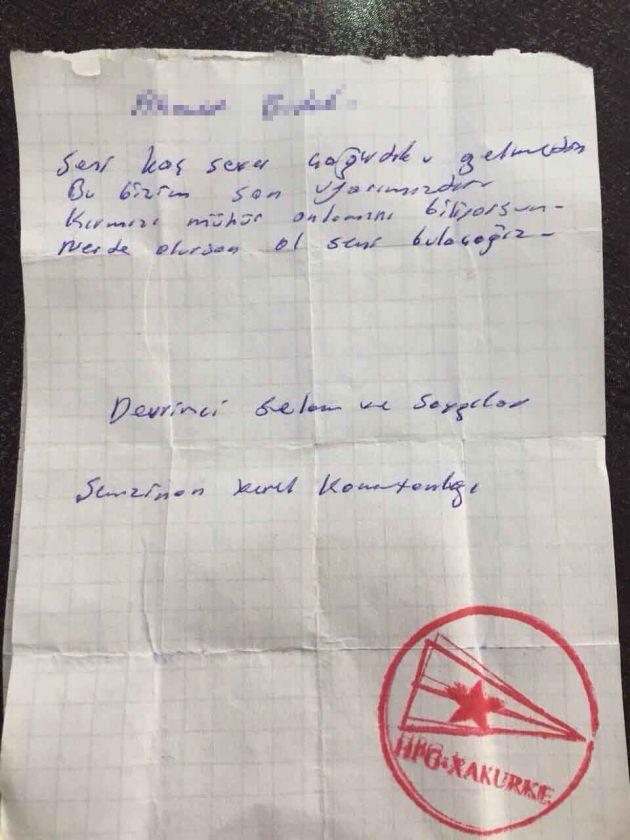 Seni kaç sefer çağırdık gelmedin
Bu bizim son uyarımızdır
Kırmızı mühür anlamını biliyorsun-
Nerde olursan ol seni bulacağız-
Devrimci selam ve Saygılar
Şemzinan Komutanlığı
HPG-XAKURKE